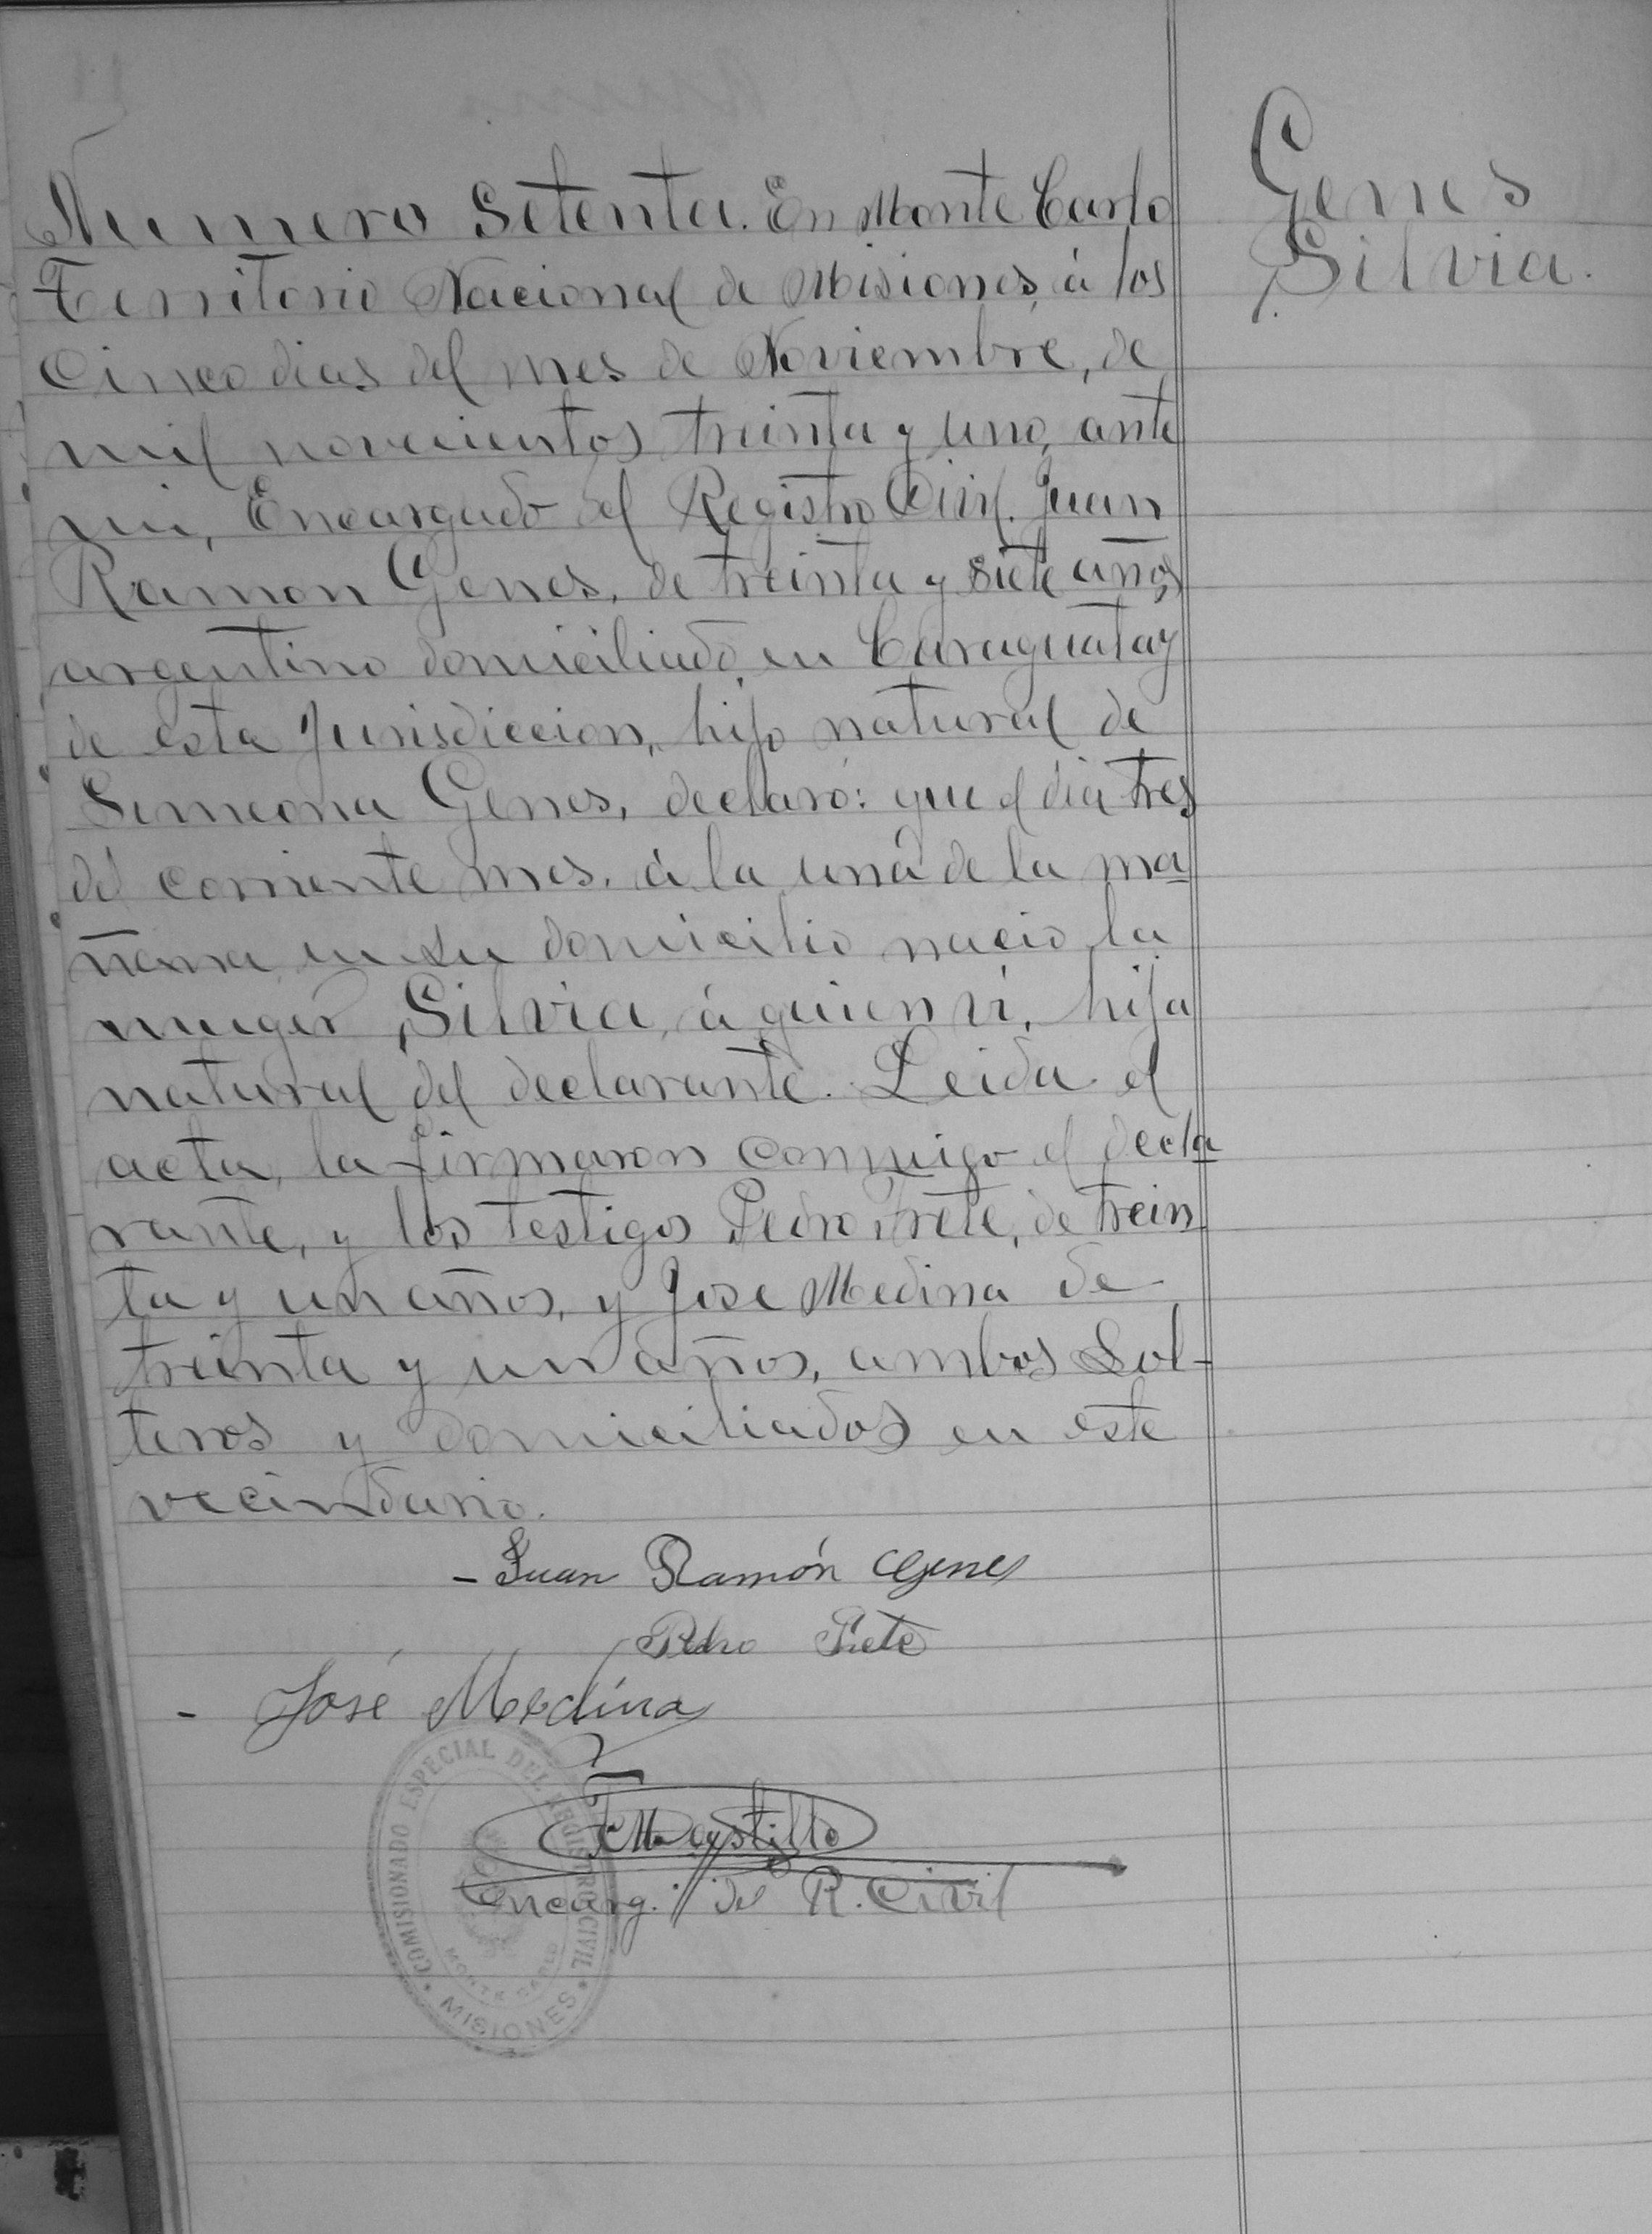 Genes
Silvia.
Numero Setenta. En Monte Carlo
Territorio Nacional de Misiones, á los
Cinco dias del mes de Noviembre, de
mil novecientos treinta y uno, ante
mi, Encargado del Registro Civil. Juan
Ramon Genes, de treinta y siete años
argentino domiciliado en Caraguatay
de esta Jurisdiccion, hijo natural de
Simeona Genes, declaró: que el dia tres
del corriente mes, á la una de la ma-
ñana, en su domicilio nacio la
muger Silvia, á quien vi, hija
natural del declarante. Leida el
acta, la firmaron conmigo el decla
rante, y los testigos Pedro, de trein
ta y un años, y Jose Medina de
treinta y un años, ambos Sol-
teros y domiciliados en este
vecindario.
- Juan Ramón Genes
Pedro
- José Medina
Encarg. del R. Civil
COMISIONADO ESPECIAL DEL REGISTRO CIVIL
MONTE CARLO
MISIONES